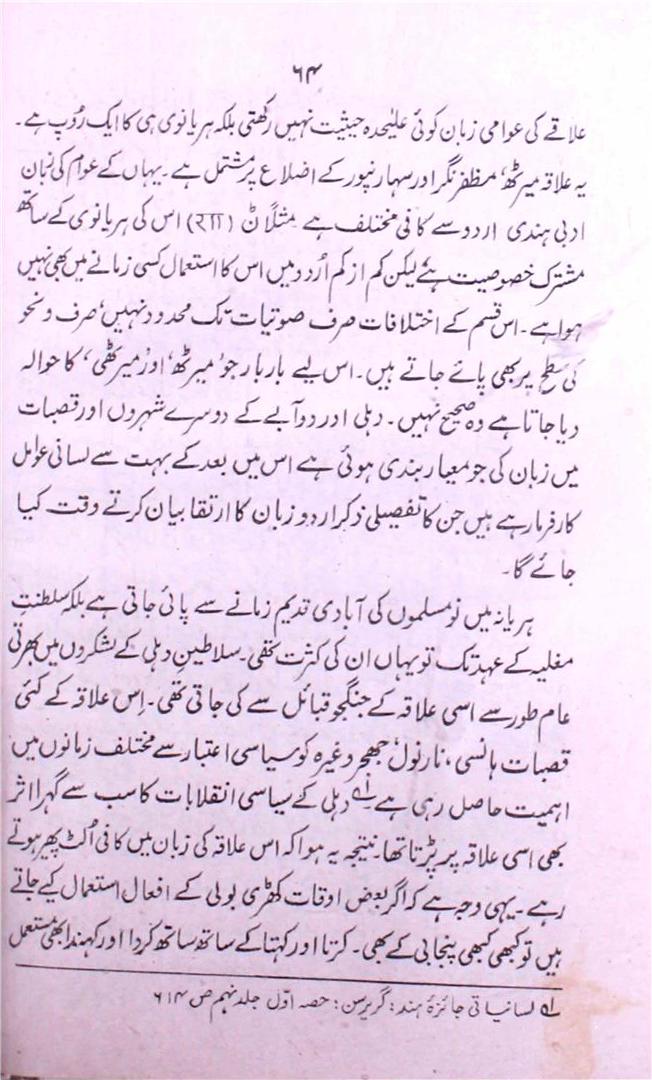 ۶۴
علاقے کی عوامی زبان کوئی علیٰحدہ حیثیت نہیں رکھتی بلکہ ہریانوی ہی کا ایک رُوپ ہے۔
یہ علاقہ میرٹھ، مظفر نگر اور سہارنپور کے اضلاع پر مشتمل ہے۔ یہاں کے عوام کی زبان
ادبی ہندی اردو سے کافی مختلف ہے مثلاً ن (را) اس کی ہریانوی کے ساتھ
مشترک خصوصیت ہے لیکن کم از کم اُردو میں اس کا استعمال کسی زمانے میں بھی نہیں
ہوا ہے۔ اس قسم کے اختلافات صرف صوتیات تک محدود نہیں، صرف و نحو
کی سطح پر بھی پائے جاتے ہیں۔ اس لیے بار بار جو 'میرٹھ' اور 'میرٹھی' کا حوالہ
دیا جاتا ہے وہ صحیح نہیں۔ دہلی اور دوآبے کے دوسرے شہروں اور قصبات
میں زبان کی جو معیار بندی ہوئی ہے اس میں بعد کے بہت سے لسانی عوامل
کارفرما رہے ہیں جن کا تفصیلی ذکر اردو زبان کا ارتقا بیان کرتے وقت کیا
جائے گا۔
ہریانہ میں نو مسلموں کی آبادی قدیم زمانے سے پائی جاتی ہے بلکہ سلطنتِ
مغلیہ کے عہد تک تو یہاں ان کی کثرت تھی۔ سلاطینِ دہلی کے لشکروں میں بھرتی
عام طور سے اسی علاقہ کے جنگجو قبائل سے کی جاتی تھی۔ اِس علاقہ کے کئی
قصبات ہانسی، نارنول، جھجر وغیرہ کو سیاسی اعتبار سے مختلف زمانوں میں
اہمیت حاصل رہی ہے ۱؎ دہلی کے سیاسی انقلابات کا سب سے گہرا اثر
بھی اسی علاقہ پر پڑتا تھا۔ نتیجہ یہ ہوا کہ اس علاقہ کی زبان میں کافی اُلٹ پھیر ہوتے
رہے۔ یہی وجہ ہے کہ اگر بعض اوقات کھڑی بولی کے افعال استعمال کیے جاتے
ہیں تو کبھی کبھی پنجابی کے بھی۔ کرتا اور کہتا کے ساتھ ساتھ کردا اور کہندا بھی مستعمل
۱؎ لسانیاتی جائزۂ ہند: گریرسن: حصہ اوّل جلد نہم ص ۶۱۴